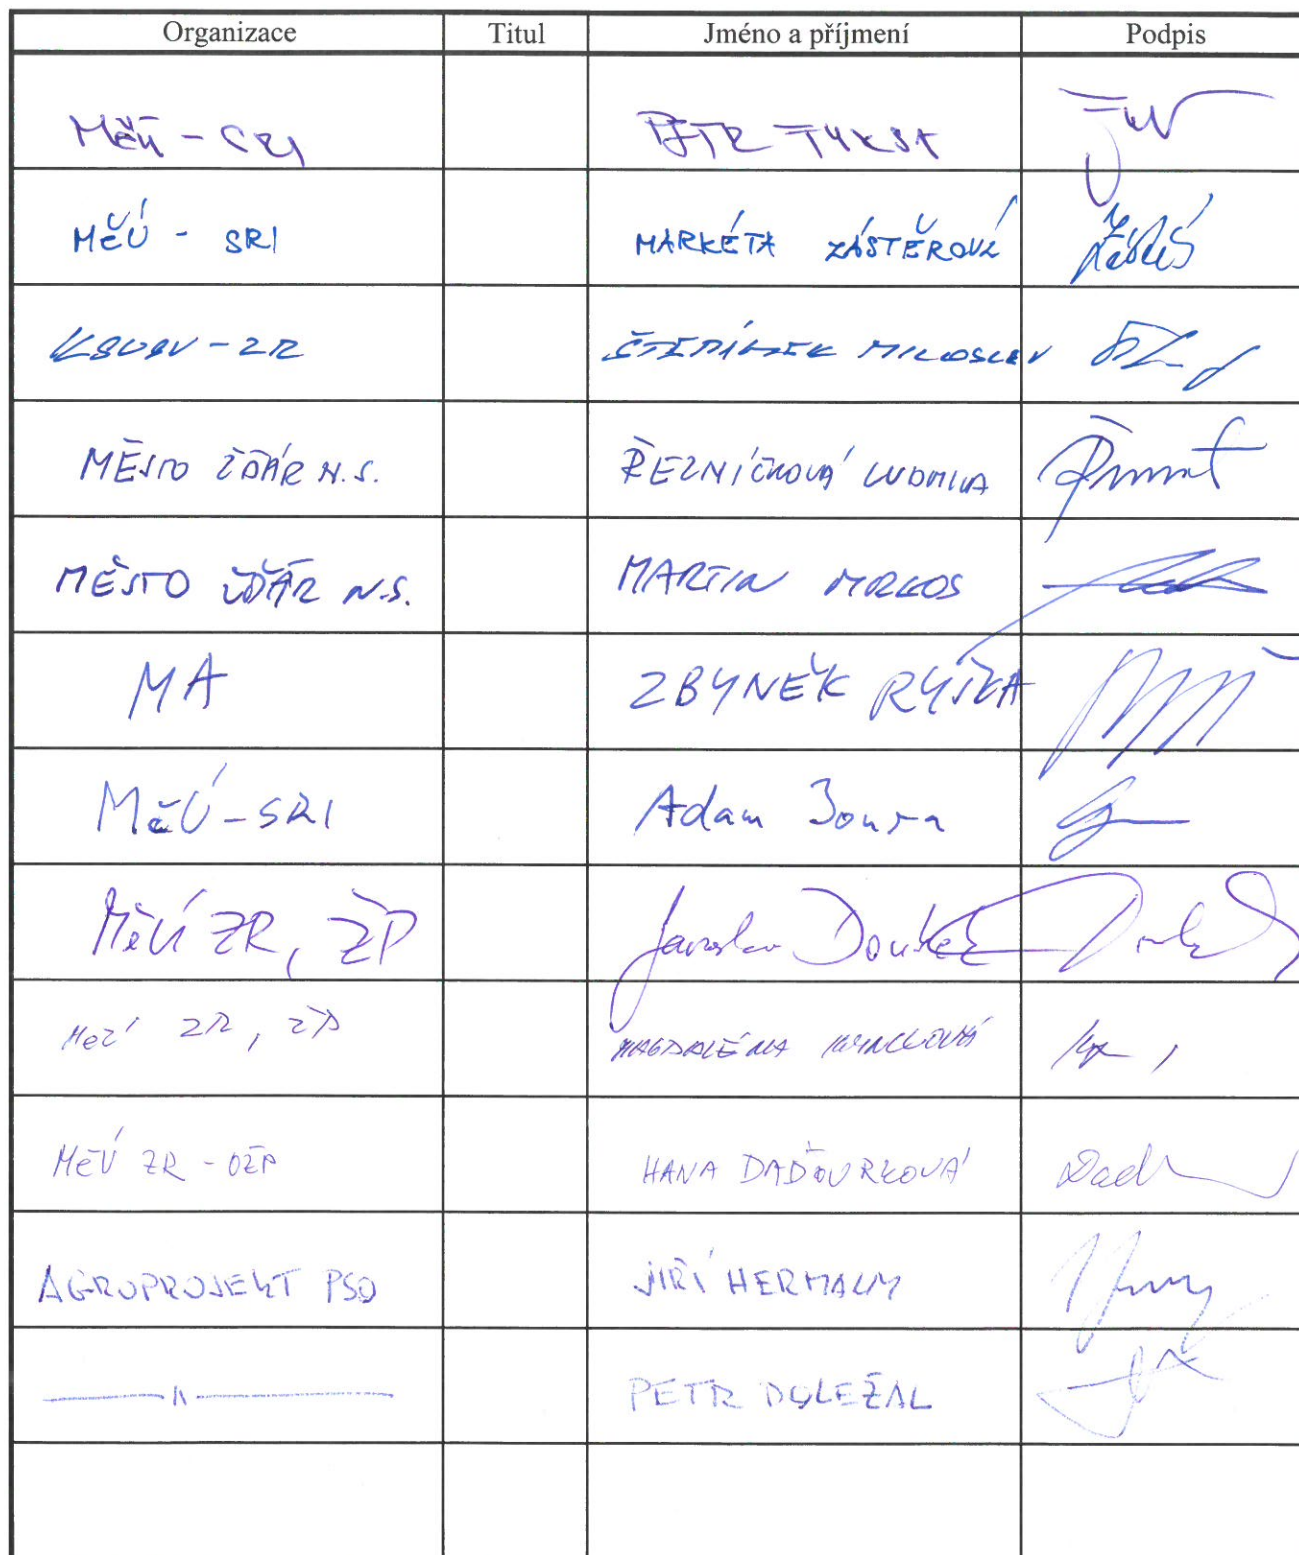 Organizace Titul Jméno a příjmení Podpis
MěÚ - SRI PETR TYKST
MěÚ - SRI MARKÉTA ZÁSTĚROVÁ
KSUSV - ZR ŠTĚPÁNEK MILOSLAV
MĚSTO ŽĎÁR N.S. ŘEZNÍČKOVÁ LUDMILA
MĚSTO ŽĎÁR N.S. MARTIN MRKOS
MA ZBYNĚK RYŠKA
MěÚ - SRI Adam Joura
MěÚ ZR, ŽP Jaroslav Doubek
MěÚ ZR, ŽP MAGDALÉNA
MěÚ ZR - OŽP HANA DAĎOURKOVÁ
AGROPROJEKT PSO JIŘÍ HERMANY
—— 〃 —— PETR DOLEŽAL